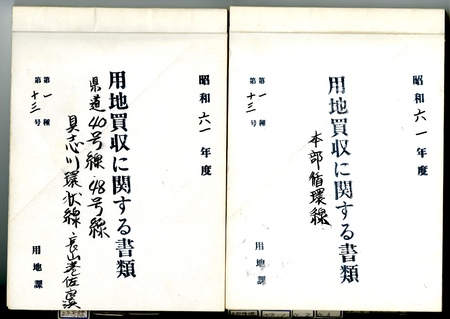 昭和六一年度
用地買収に関する書類
県道40号線・48号線
具志川環状線・
第一種
第十三号
用地課
昭和六一年度
用地買収に関する書類
本部循環線
第一種
第十三号
用地課